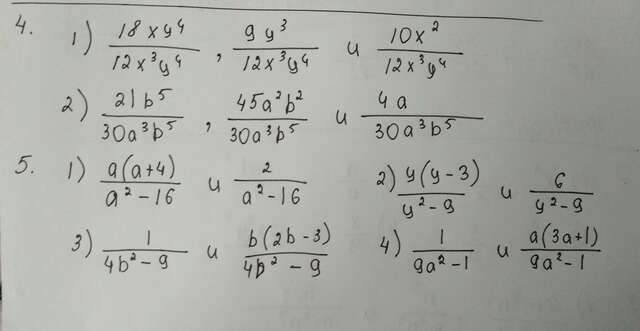 4. 1) 18xy⁴/12x³y⁴ , 9y³/12x³y⁴ и 10x²/12x³y⁴
2) 21b⁵/30a³b⁵ , 45a²b²/30a³b⁵ и 4a/30a³b⁵
5. 1) a(a+4)/a²-16 и 2/a²-16 2) y(y-3)/y²-9 и 6/y²-9
3) 1/4b²-9 и b(2b-3)/4b²-9 4) 1/9a²-1 и a(3a+1)/9a²-1